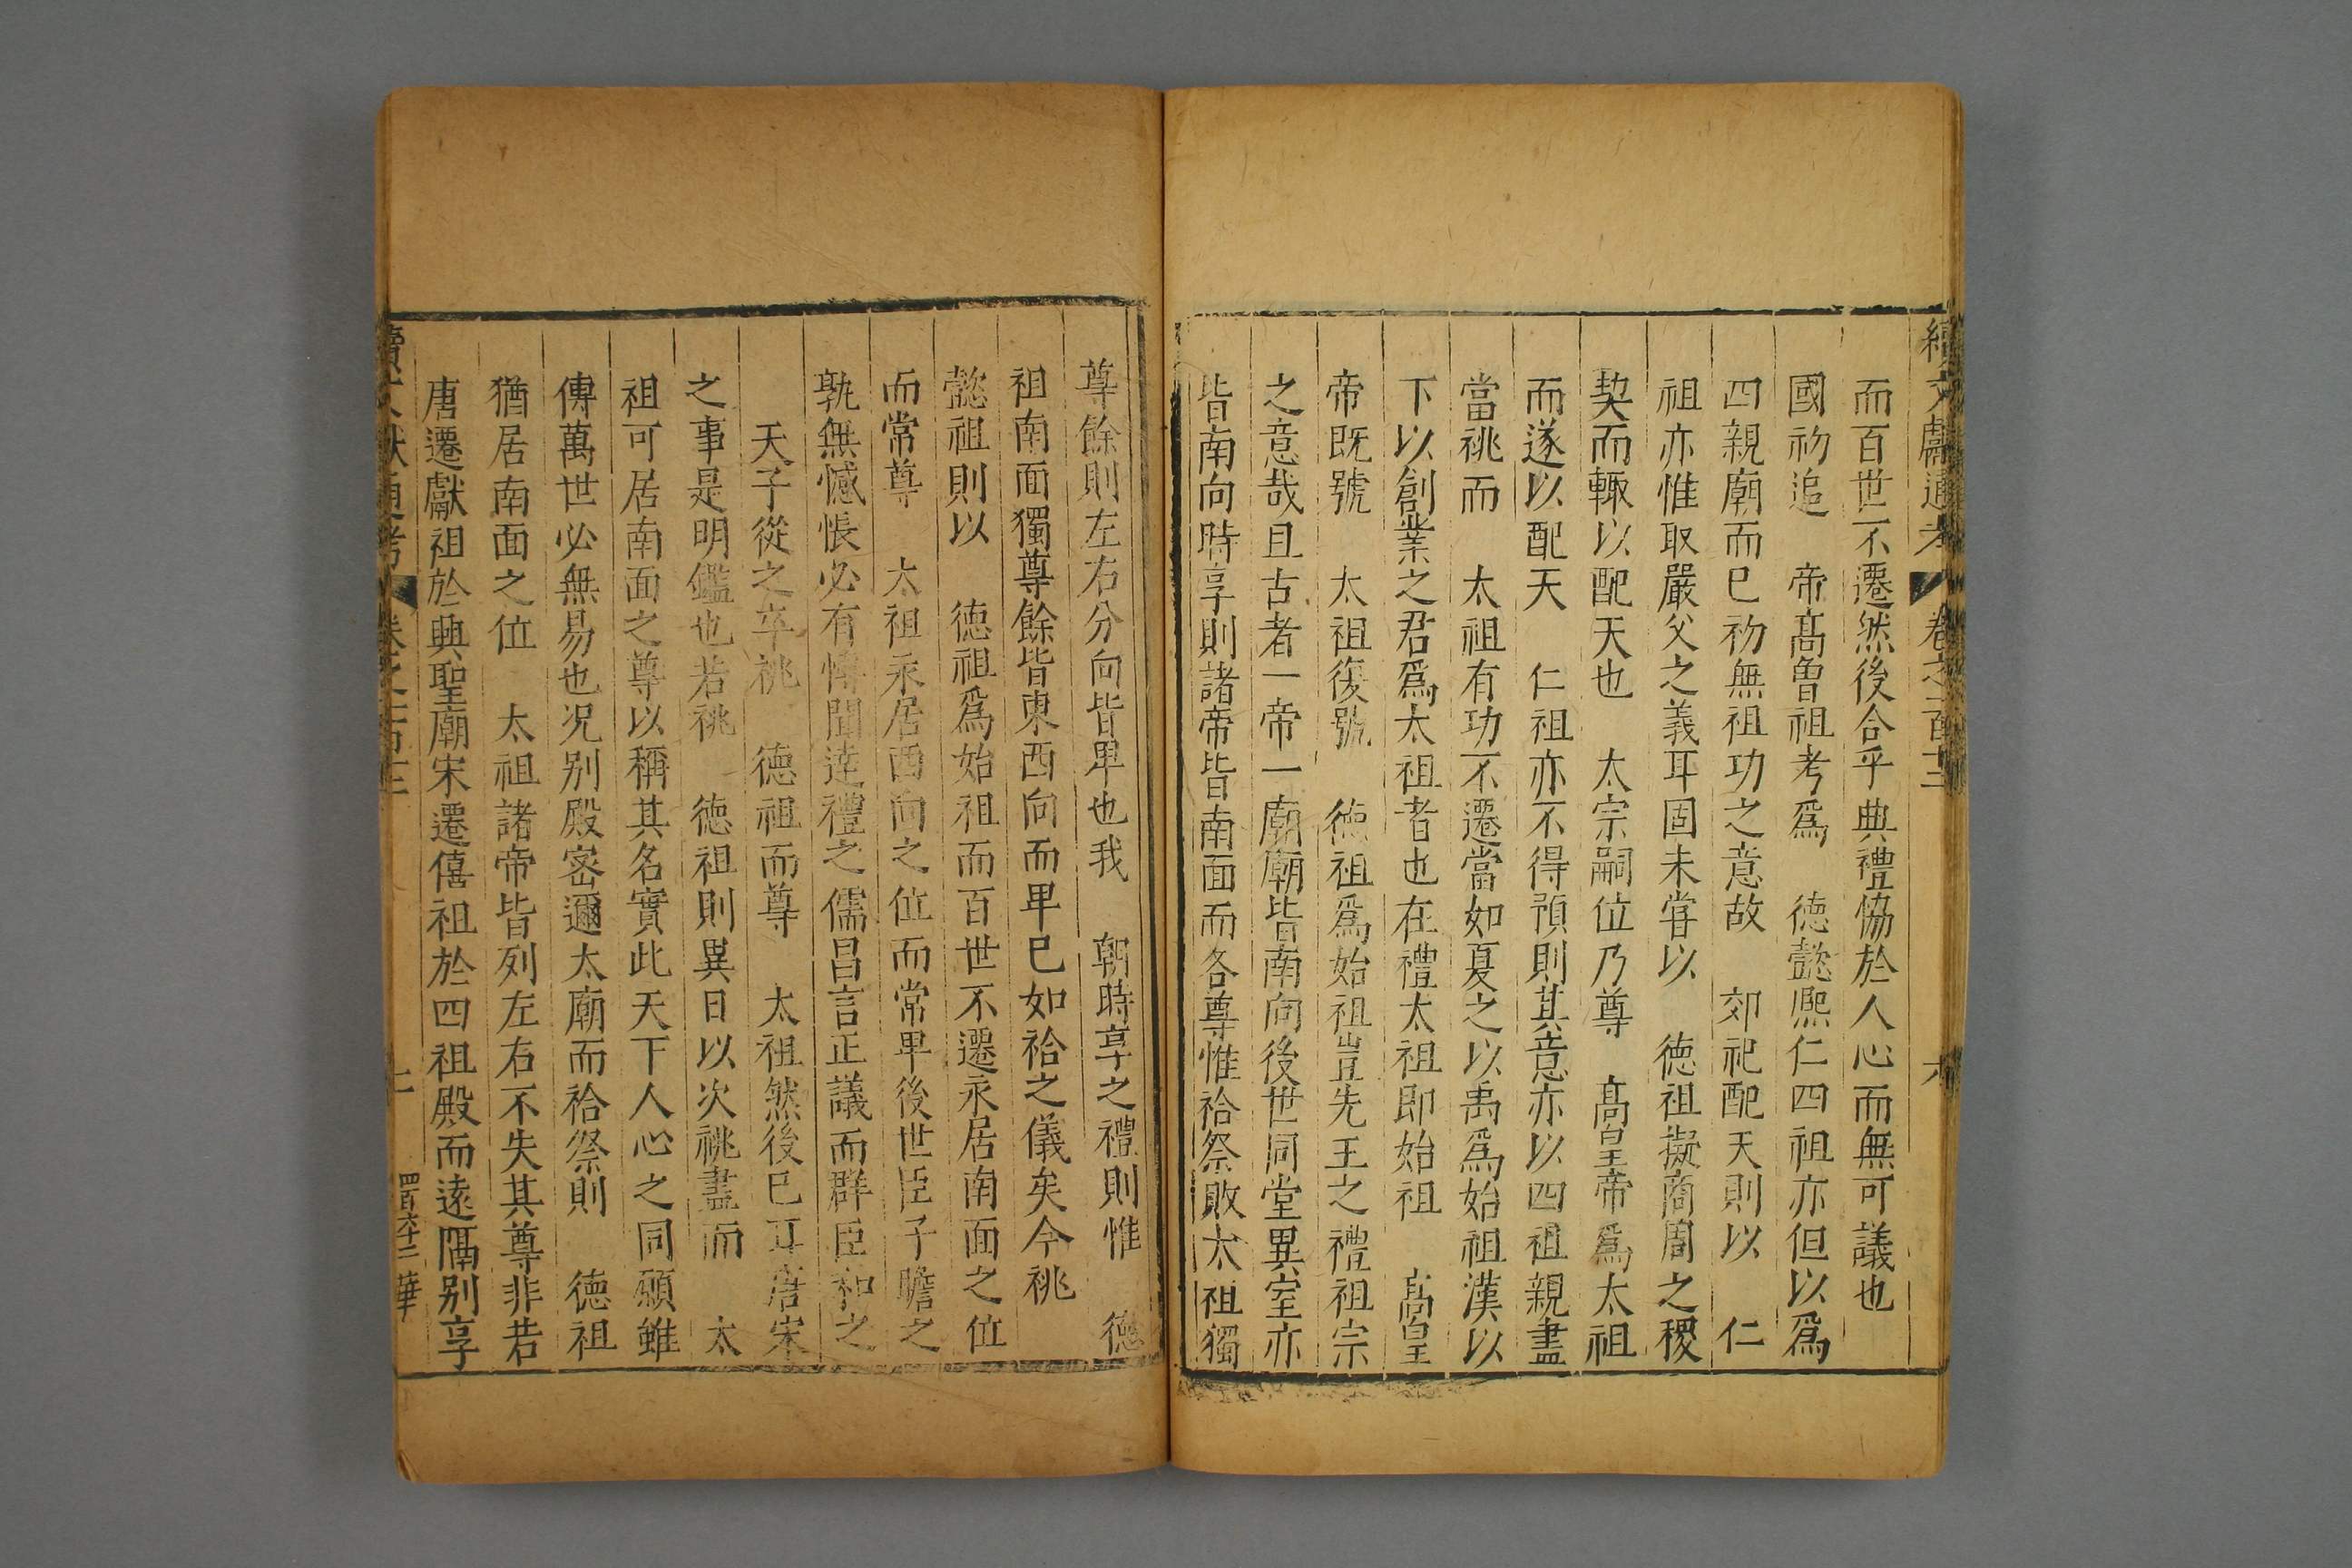 續文獻通考 卷之一百十三 六
而百世不遷然後合乎典禮恊於人心而無可議也
國初追 帝髙曾祖考爲 德懿熈仁四祖亦但以爲
四親廟而已初無祖功之意故 郊祀配天則以 仁
祖亦惟取嚴父之義耳固未甞以 德祖擬商周之稷
契而輒以配天也 太宗嗣位乃尊 髙皇帝爲太祖
而遂以配天 仁祖亦不得預則其意亦以四祖親盡
當祧而 太祖有功不遷當如夏之以禹爲始祖漢以
下以創業之君爲太祖者也在禮太祖即始祖 髙皇
帝既號 太祖復號 德祖爲始祖豈先王之禮祖宗
之意哉且古者一帝一廟廟皆南向後世同堂異室亦
皆南向時享則諸帝皆南面而各尊惟祫祭敗太祖獨
尊餘則左右分向皆卑也我 朝時享之禮則惟 德
祖南面獨尊餘皆東西向而卑已如祫之儀矣今祧
懿祖則以 德祖爲始祖而百世不遷永居南面之位
而常尊 太祖永居西向之位而常卑後世臣子瞻之
孰無憾悵必有博聞達禮之儒昌言正議而群臣和之
天子從之卒祧 德祖而尊 太祖然後已耳唐宋
之事是明鑑也若祧 德祖則異日以次祧盡而 太
祖可居南面之尊以稱其名實此天下人心之同願雖
傳萬世必無易也况别殿宻邇太廟而祫祭則 德祖
猶居南面之位 太祖諸帝皆列左右不失其尊非若
唐遷獻祖於興聖廟宋遷僖祖於四祖殿而遠隔别享
續文獻通考 卷之一百十三 四百六十二 華